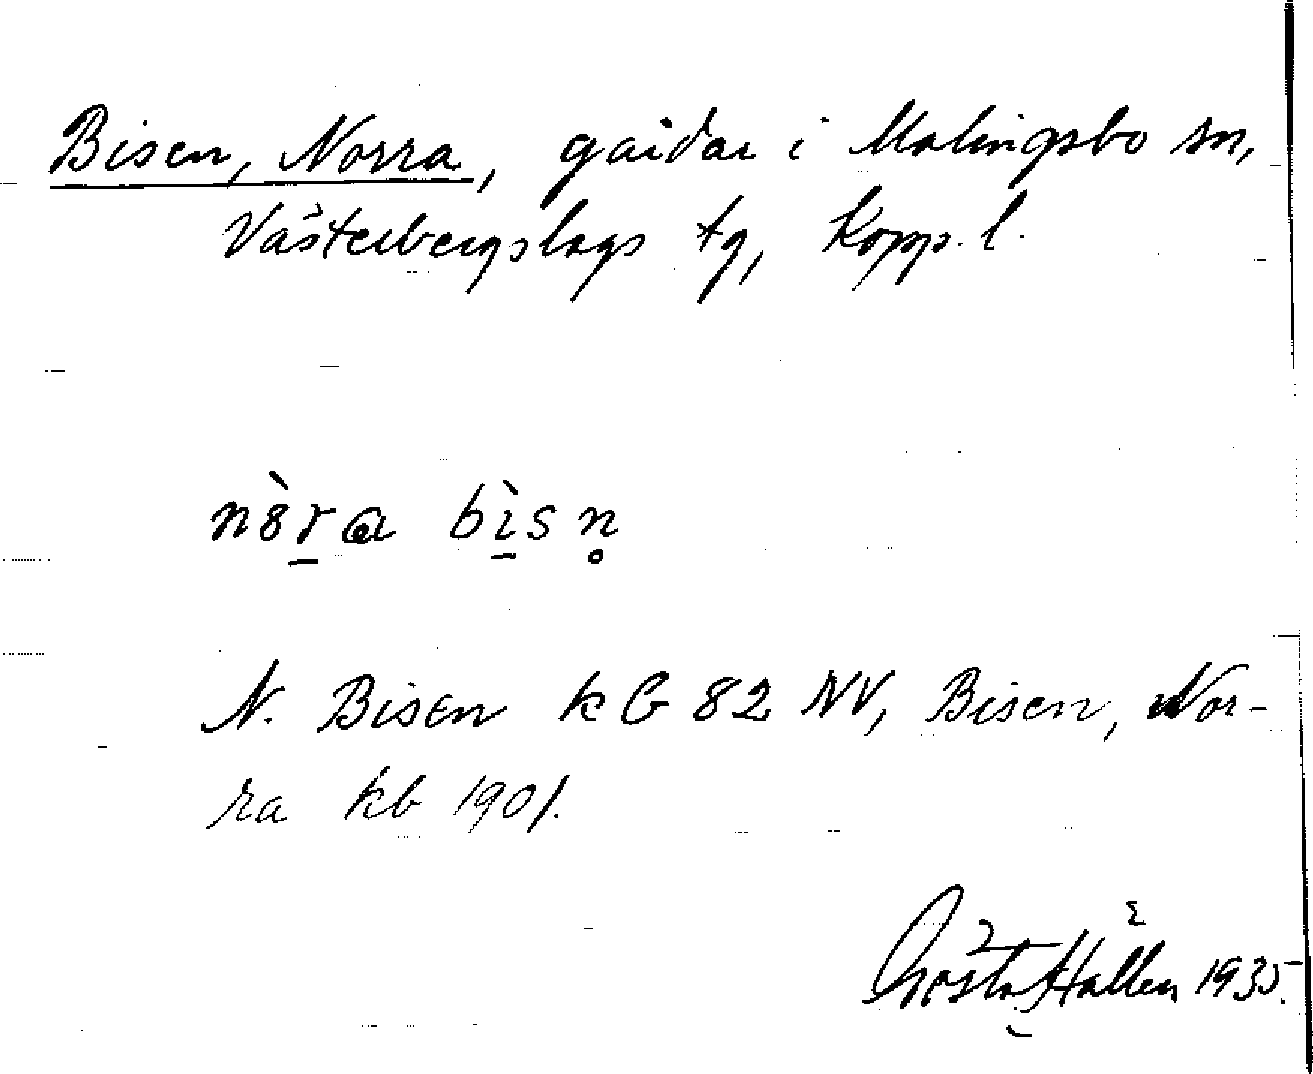 Bisen, Norra, gårdar i Malingsbo sn,
Västerbergslags tg, Kopp. l.
nò̀r̲a bì̲sn̥
N. Bisen kb 82 NV, Bisen, Nor-
ra kb 1901.
Gösta Hallén 1935.